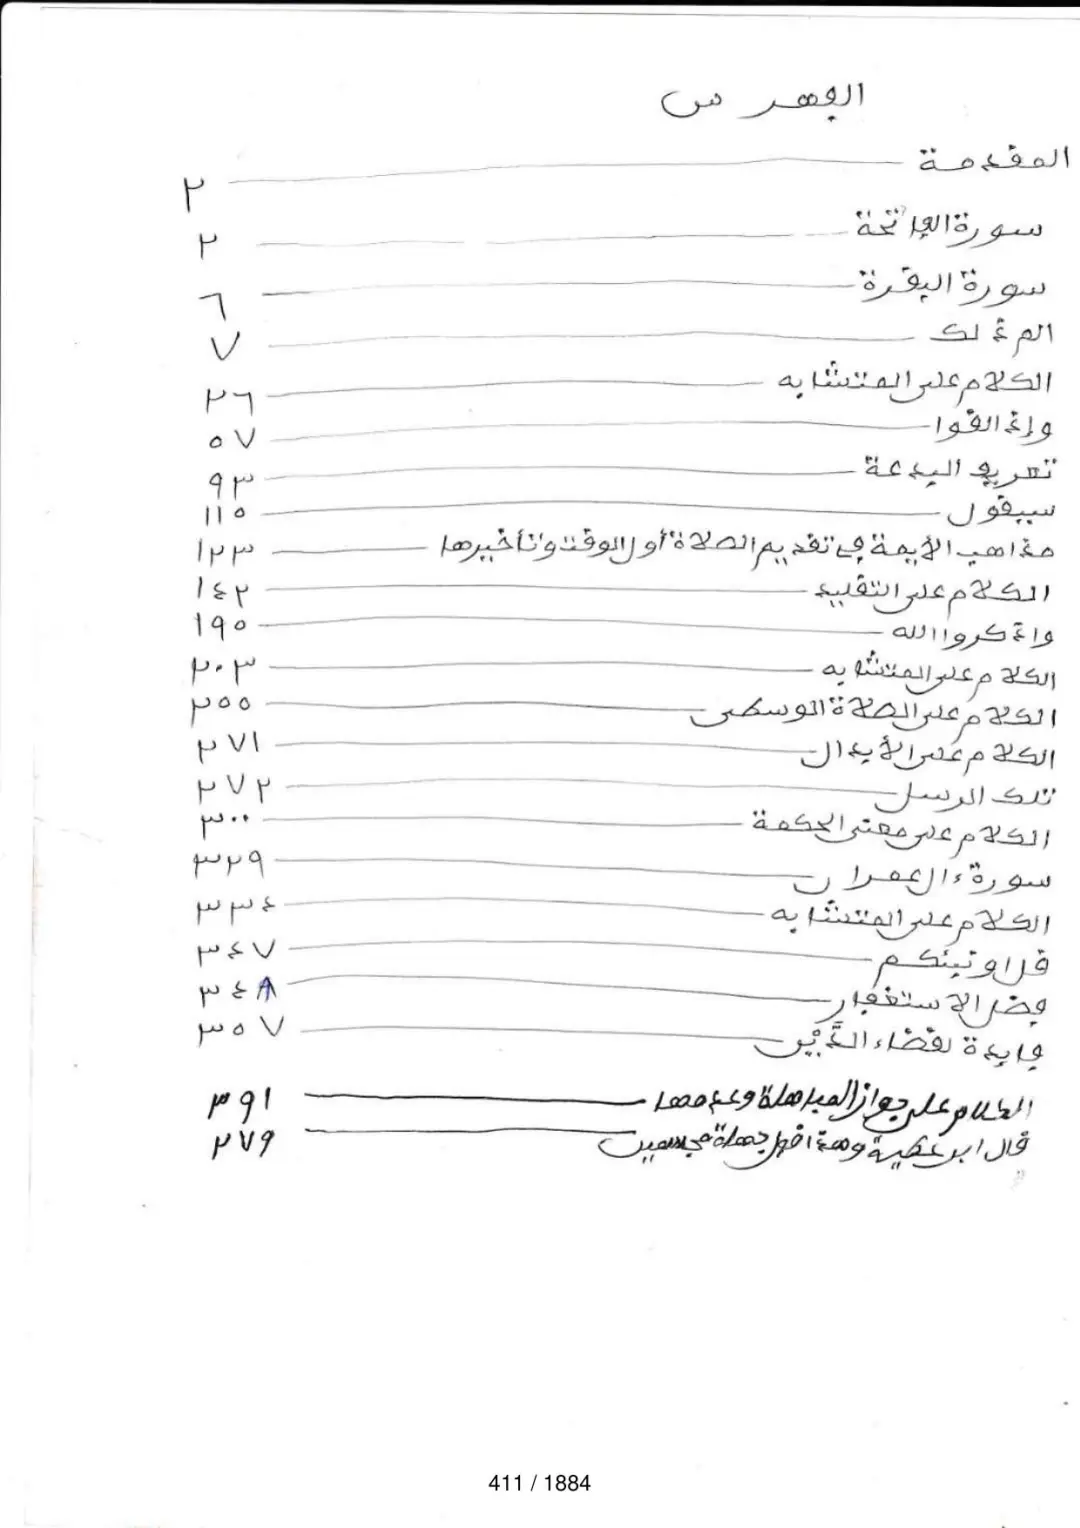 الفهرس
المقدمة ٢
سورة الفاتحة ٢
سورة البقرة ٦
الم ذلك ٧
الكلام على المتشابه ٢٦
وإذا لقوا ٥٧
تعريف البدعة ٩٣
سيقول ١١٥
مذاهب الأيمة في تقديم الصلاة أول الوقت وتأخيرها ١٢٣
الكلام على التقليد ١٤٢
واذكروا الله ١٩٥
الكلام على المتشابه ٢٠٣
الكلام على الصلاة الوسطى ٢٥٥
الكلام على الأبدال ٢٧١
تلك الرسل ٢٧٢
الكلام على معنى الحكمة ٣٠٠
سورة ءال عمران ٣٢٩
الكلام على المتشابه ٣٣٤
قل اونبئكم ٣٤٧
فضل الاستغفار ٣٤٨
فايدة لقضاء الدَّيْن ٣٥٧
الكلام على جواز المباهلة وعدمها ٣٩١
قال ابن عطية وهذا قول جهلة مجسمين ٢٧٩
411 / 1884